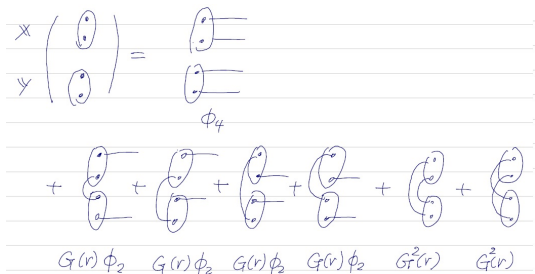 X
=
Y
ϕ₄
+ + + + + +
G(r) ϕ₂ G(r) ϕ₂ G(r) ϕ₂ G(r) ϕ₂ G²(r) G²(r)